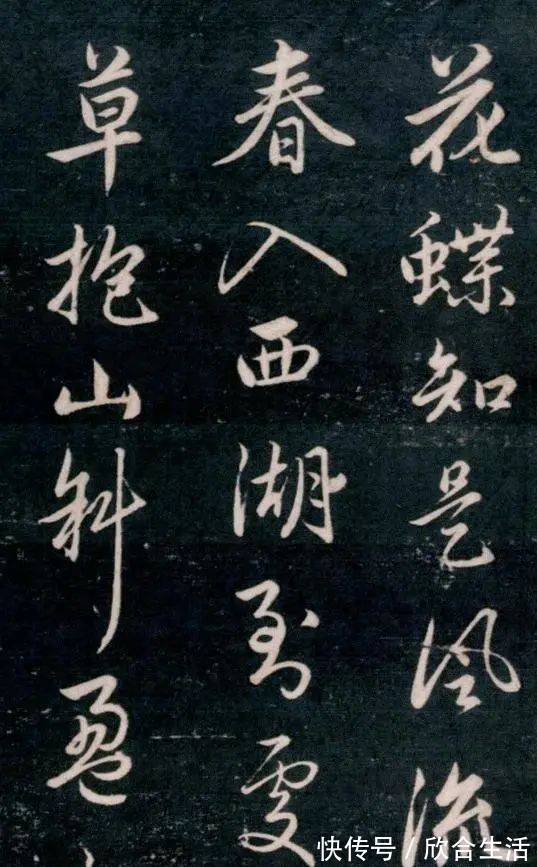 花蝶知是風流
春入西湖到處
草抱山斜盈
快传号 / 欣合生活